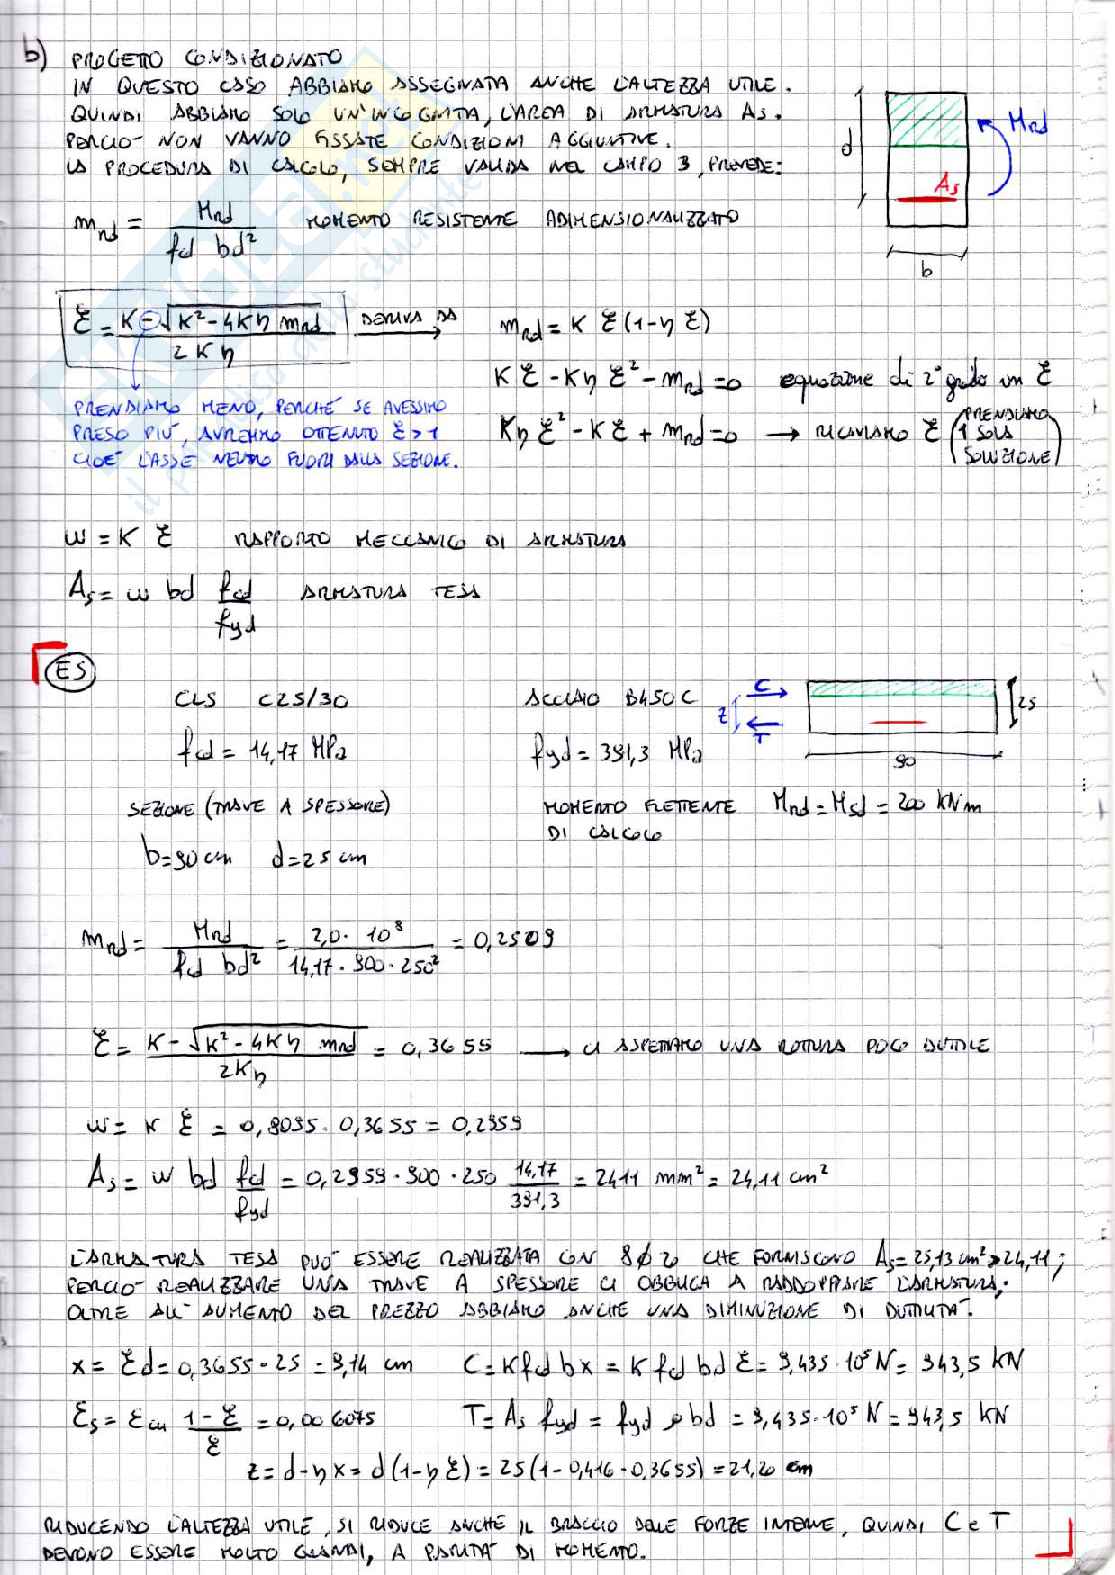 b) PROGETTO CONDIZIONATO
IN QUESTO CASO ABBIAMO ASSEGNATA ANCHE L'ALTEZZA UTILE.
QUINDI ABBIAMO SOLO UN'INCOGNITA, L'AREA DI ARMATURA As.
PERCIO' NON VANNO FISSATE CONDIZIONI AGGIUNTIVE.
LA PROCEDURA DI CALCOLO, SEMPRE VALIDA NEL CAMPO 3, PREVEDE:
d
Mrd
As
b
m_rd = Mrd / (fcd bd²) MOMENTO RESISTENTE ADIMENSIONALIZZATO
ξ = (K - √(K² - 4Kη m_rd)) / (2Kη) DERIVA DA → m_rd = K ξ (1-η ξ)
Kξ - Kη ξ² - m_rd = 0 equazione di 2° grado in ξ
Kη ξ² - Kξ + m_rd = 0 → RICAVIAMO ξ (PRENDIAMO 1 SOLA SOLUZIONE)
PRENDIAMO MENO, PERCHÉ SE AVESSIMO
PRESO PIU', AVREMMO OTTENUTO ξ > 1
CIOE' L'ASSE NEUTRO FUORI DALLA SEZIONE.
ω = K ξ RAPPORTO MECCANICO DI ARMATURA
As = ω bd fcd / fyd ARMATURA TESA
ES
CLS C25/30 ACCIAIO B450C
C
z
T
25
90
fcd = 14,17 MPa fyd = 391,3 MPa
SEZIONE (TRAVE A SPESSORE) MOMENTO FLETTENTE DI CALCOLO Mrd = Msd = 200 kNm
b = 90 cm d = 25 cm
m_rd = Mrd / (fcd bd²) = 2,0 · 10⁸ / (14,17 · 900 · 250²) = 0,2509
ξ = (K - √(K² - 4Kη m_rd)) / (2Kη) = 0,3655 → CI ASPETTIAMO UNA ROTTURA POCO DUTTILE
ω = K ξ = 0,8095 · 0,3655 = 0,2959
As = ω bd fcd / fyd = 0,2959 · 900 · 250 14,17 / 391,3 = 2411 mm² = 24,11 cm²
L'ARMATURA TESA PUO' ESSERE REALIZZATA CON 8φ20 CHE FORNISCONO As = 25,13 cm² > 24,11;
PERCIO' REALIZZARE UNA TRAVE A SPESSORE CI OBBLIGA A RADDOPPIARE L'ARMATURA.
OLTRE ALL'AUMENTO DEL PREZZO ABBIAMO ANCHE UNA DIMINUZIONE DI DUTTILITA'.
x = ξd = 0,3655 · 25 = 9,14 cm C = K fcd b x = K fcd bd ξ = 9,435 · 10⁵ N = 943,5 kN
εs = εcu (1 - ξ) / ξ = 0,006075 T = As fyd = fyd ρ bd = 9,435 · 10⁵ N = 943,5 kN
z = d - η x = d (1-η ξ) = 25 (1 - 0,416 · 0,3655) = 21,20 cm
RIDUCENDO L'ALTEZZA UTILE, SI RIDUCE ANCHE IL BRACCIO DELLE FORZE INTERNE, QUINDI C e T
DEVONO ESSERE MOLTO GRANDI, A PARITA' DI MOMENTO.